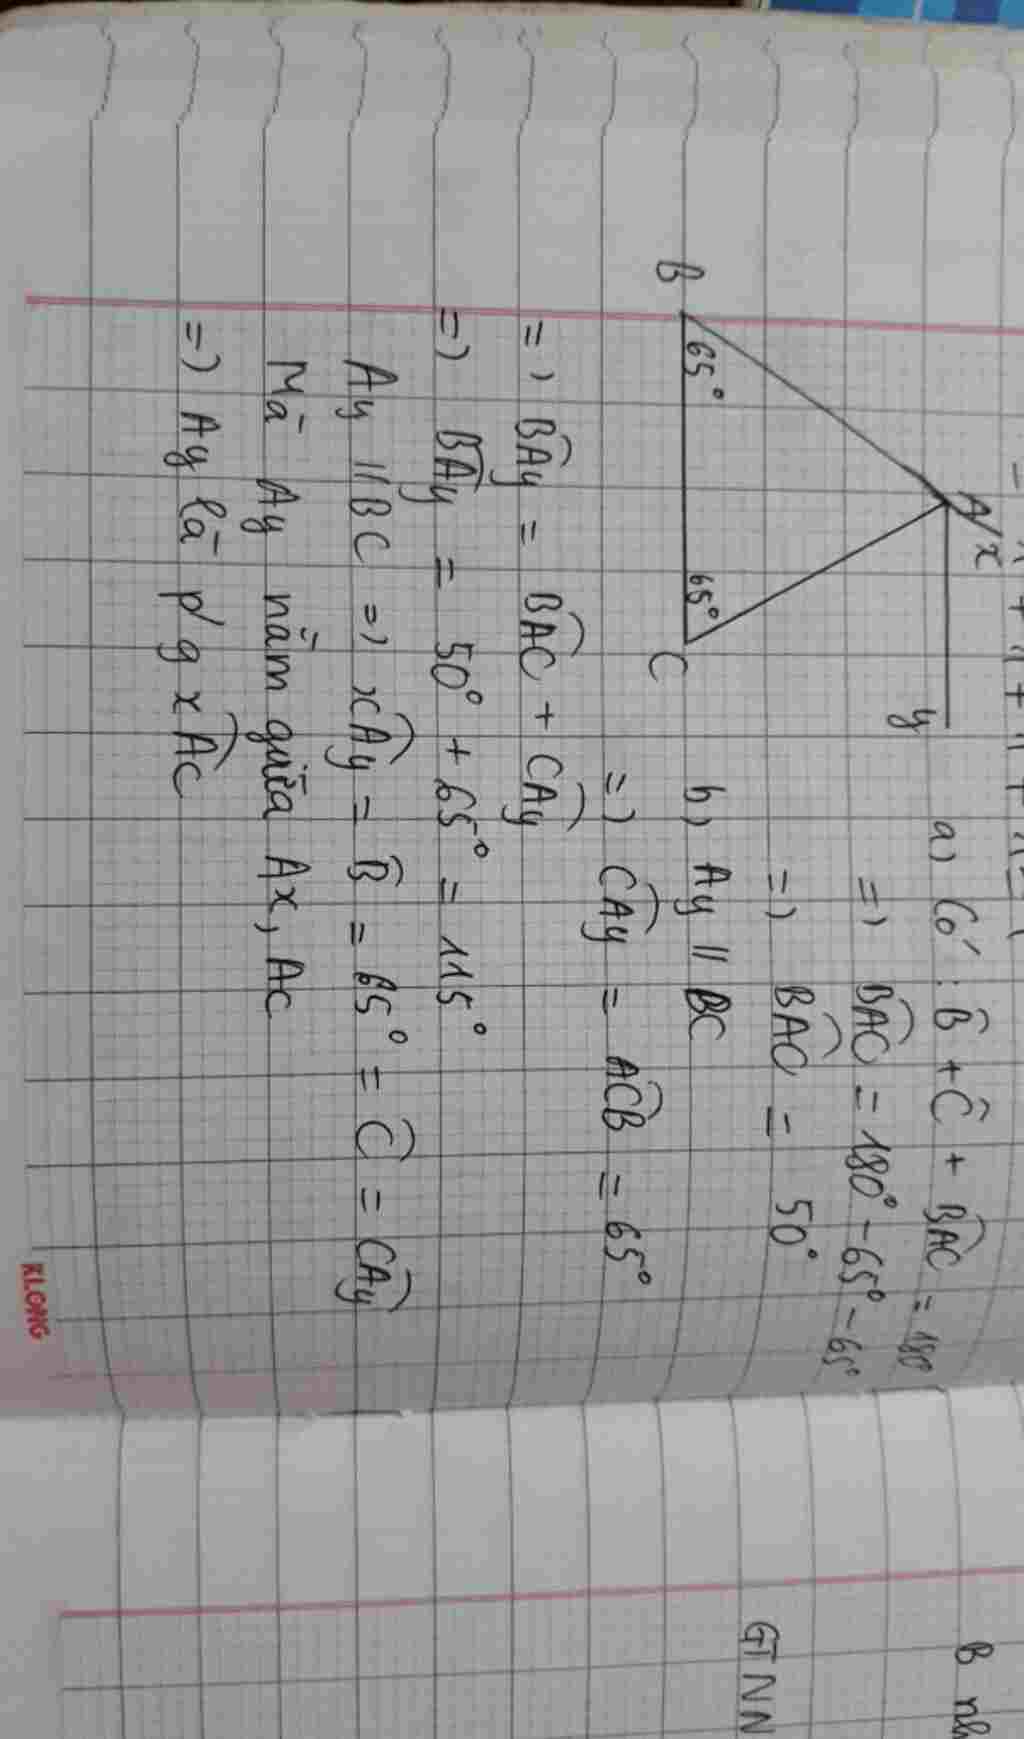 A x
y
B 65° 65° C
a) Có : B̂ + Ĉ + BAC = 180°
=) BAC = 180° - 65° - 65°
=) BAC = 50°
b) Ay // BC
=) CAy = ACB = 65°
=) BAy = BAC + CAy
=) BAy = 50° + 65° = 115°
Ay // BC =) xAy = B̂ = 65° = Ĉ = CAy
Mà Ay nằm giữa Ax, AC
=) Ay là p/g xAC
KLONG
B
GTNN